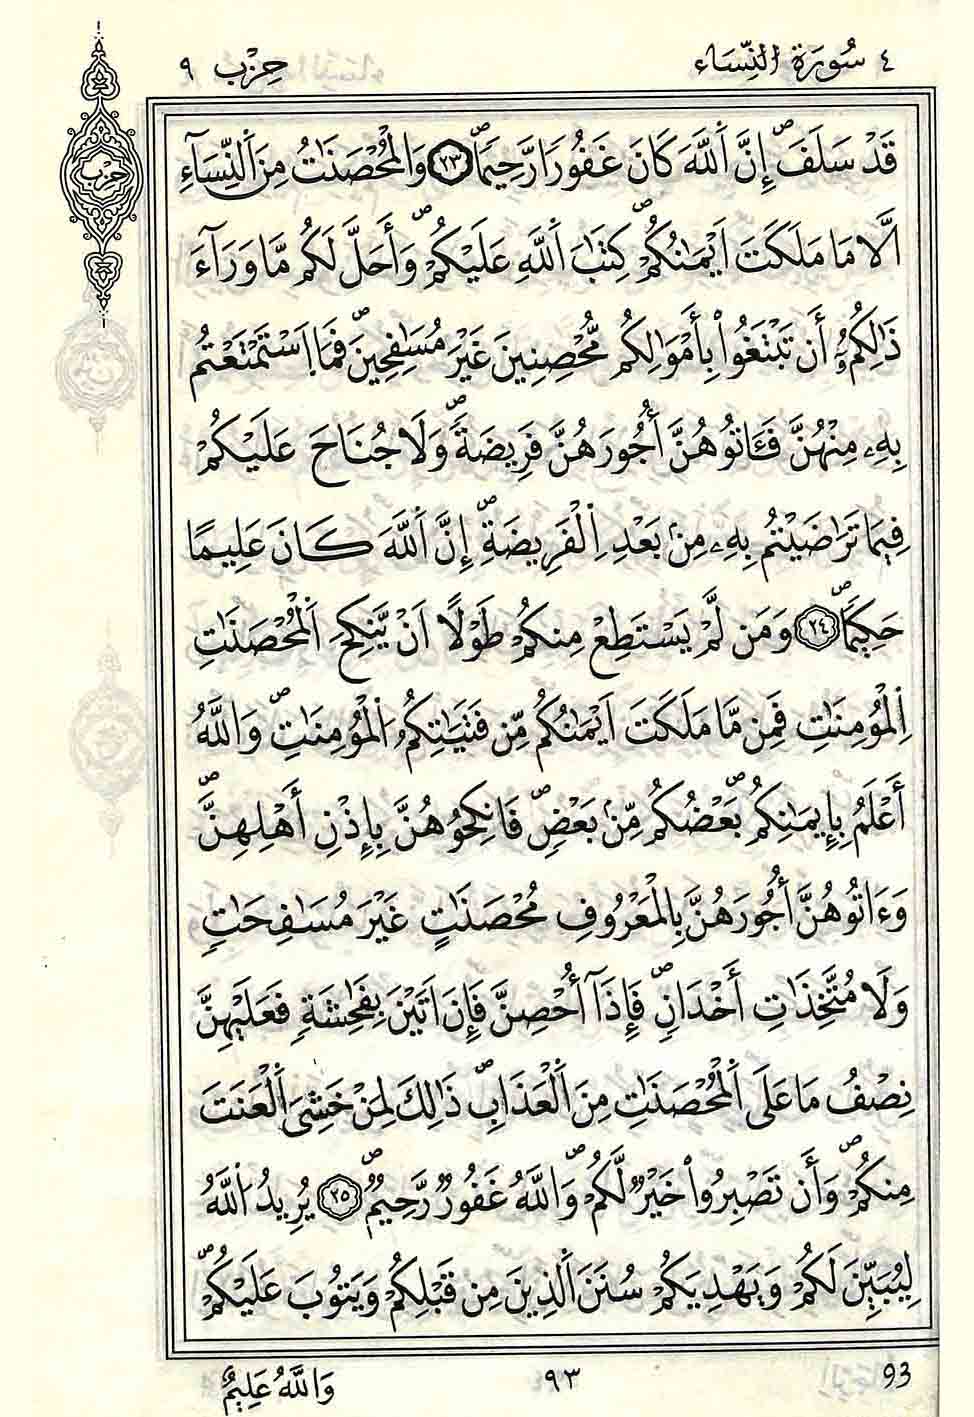 ٤ سُورَةُ النِّسَاءِ
حِزْب ٩
حزب
قَدْ سَلَفَۖ إِنَّ اَللَّهَ كَانَ غَفُورًا رَّحِيمًاۖ ٢٣ وَالْمُحْصَنَٰتُ مِنَ اَلنِّسَآءِ
اِلَّا مَا مَلَكَتَ اَيْمَٰنُكُمْۖ كِتَٰبَ اَللَّهِ عَلَيْكُمْۖ وَأَحَلَّ لَكُم مَّا وَرَآءَ
ذَٰلِكُمُۥٓ أَن تَبْتَغُواْ بِأَمْوَٰلِكُم مُّحْصِنِينَ غَيْرَ مُسَٰفِحِينَۖ فَمَا اَسْتَمْتَعْتُم
بِهِۦ مِنْهُنَّ فَـَٔاتُوهُنَّ أُجُورَهُنَّ فَرِيضَةًۖ وَلَا جُنَاحَ عَلَيْكُمْ
فِيمَا تَرَٰضَيْتُم بِهِۦ مِنۢ بَعْدِ اِلْفَرِيضَةِۖ إِنَّ اَللَّهَ كَانَ عَلِيمًا
حَكِيمًاۖ ٢٤ وَمَن لَّمْ يَسْتَطِعْ مِنكُمْ طَوْلًا اَنْ يَّنكِحَ اَلْمُحْصَنَٰتِ
اِلْمُؤْمِنَٰتِ فَمِن مَّا مَلَكَتَ اَيْمَٰنُكُم مِّن فَتَيَٰتِكُمُ اَلْمُؤْمِنَٰتِۖ وَاللَّهُ
أَعْلَمُ بِإِيمَٰنِكُمۖ بَعْضُكُم مِّنۢ بَعْضٖۖ فَانكِحُوهُنَّ بِإِذْنِ أَهْلِهِنَّۖ
وَءَاتُوهُنَّ أُجُورَهُنَّ بِالْمَعْرُوفِ مُحْصَنَٰتٍ غَيْرَ مُسَٰفِحَٰتٍ
وَلَا مُتَّخِذَٰتِ أَخْدَانٖۖ فَإِذَآ أُحْصِنَّ فَإِنَ اَتَيْنَ بِفَٰحِشَةٍ فَعَلَيْهِنَّ
نِصْفُ مَا عَلَى اَلْمُحْصَنَٰتِ مِنَ اَلْعَذَابِۖ ذَٰلِكَ لِمَنْ خَشِيَ اَلْعَنَتَ
مِنكُمْۖ وَأَن تَصْبِرُواْ خَيْرٌ لَّكُمْۖ وَاللَّهُ غَفُورٌ رَّحِيمٌۖ ٢٥ يُرِيدُ اُللَّهُ
لِيُبَيِّنَ لَكُمْ وَيَهْدِيَكُمْ سُنَنَ اَلَّذِينَ مِن قَبْلِكُمْ وَيَتُوبَ عَلَيْكُمْۖ
93
٩٣
وَاللَّهُ عَلِيمٌ